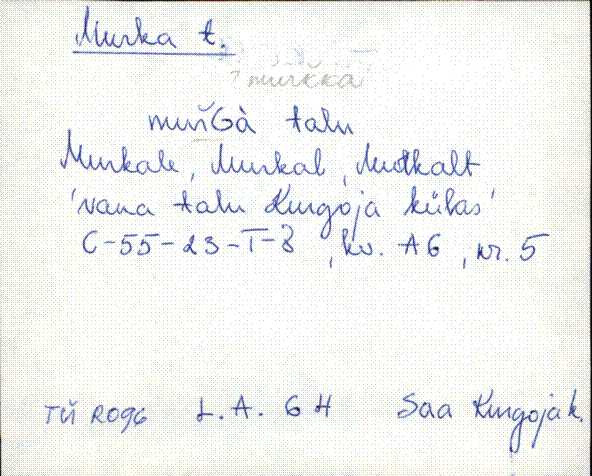 Murka t.
? murkka
mur̆Gà talu
Murkale, Murkal, Murkalt
'vana talu Kurgoja külas'
C-55-23-T-8, kv. A6, nr. 5
TÜ R096 L.A. GH Saa Kurgoja k.